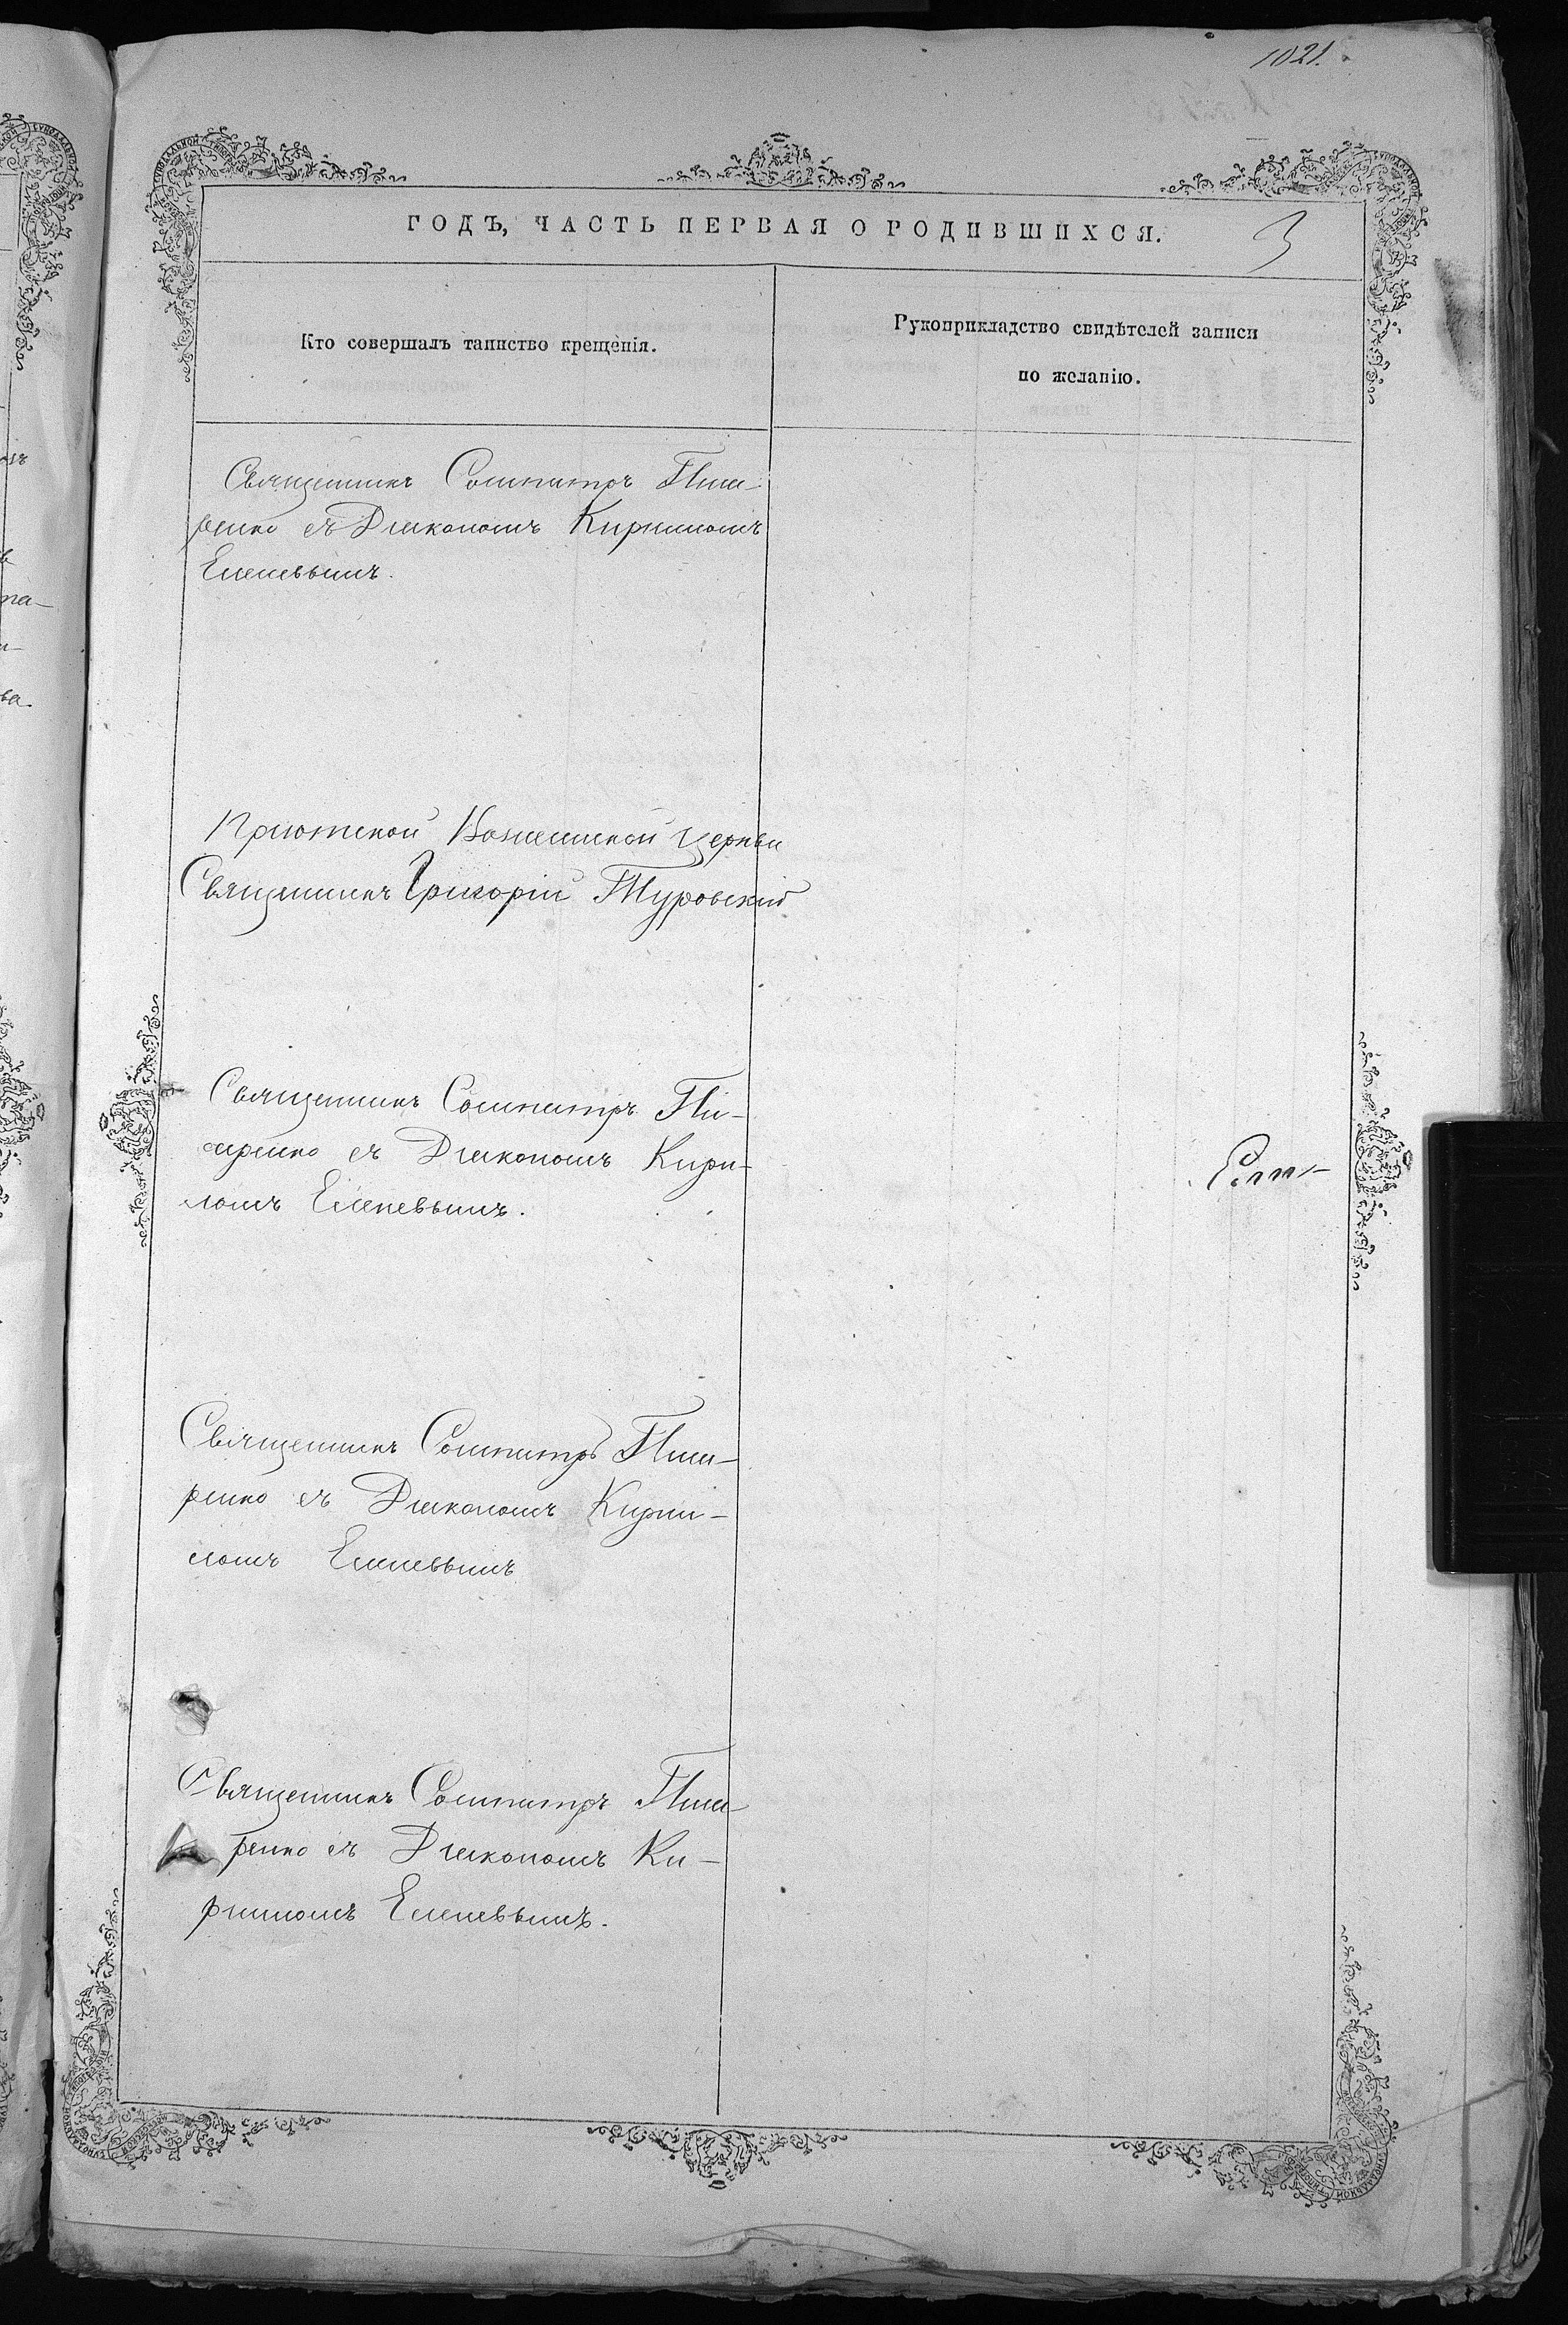 1021.
ГОДЪ, ЧАСТЬ ПЕРВАЯ О РОДИВШИХСЯ.
3
Кто совершалъ таинство крещенія.
Рукоприкладство свидѣтелей записи
по желанію.
Священникъ Сосипатръ Писа-
ренко съ Діакономъ Кирилломъ
Еленевымъ.
Пріютской церкви
Священникъ Григорій Туровскій
Священникъ Сосипатръ Пи-
саренко съ Діакономъ Кири-
ломъ Еленевымъ.
Священникъ Сосипатръ Писа-
ренко съ Діакономъ Кирил-
ломъ Еленевымъ
Священникъ Сосипатръ Писа-
ренко съ Діакономъ Ки-
рилломъ Еленевымъ.